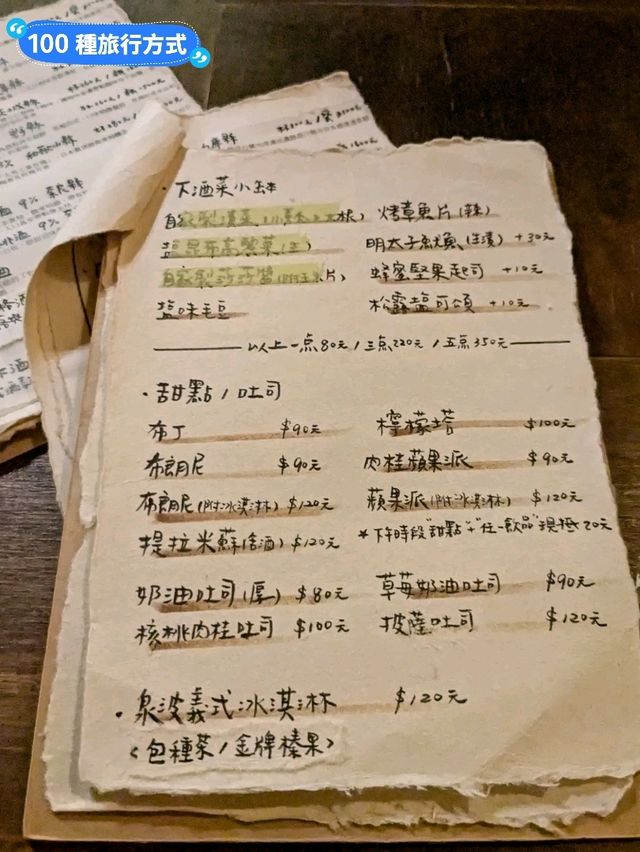 100 種旅行方式
·下酒菜小缽
自家製漬菜(小黃瓜、大根) 烤章魚片(辣)
塩昆布高麗菜(生) 明太子魷魚(生漬) +30元
自家製莎莎醬(附玉米片) 蜂蜜堅果起司 +10元
塩味毛豆 松露塩可頌 +10元
以上一点80元/三点220元/五点350元
·甜點/吐司
布丁 $90元 檸檬塔 $100元
布朗尼 $90元 肉桂蘋果派 $90元
布朗尼(附冰淇淋) $120元 蘋果派(附冰淇淋) $120元
提拉米蘇(含酒) $120元 *下午時段"甜點"+"任一飲品"現抵20元
奶油吐司(厚) $80元 草莓奶油吐司 $90元
核桃肉桂吐司 $100元 披薩吐司 $120元
·泉波義式冰淇淋 $120元
<包種茶/金牌榛果>